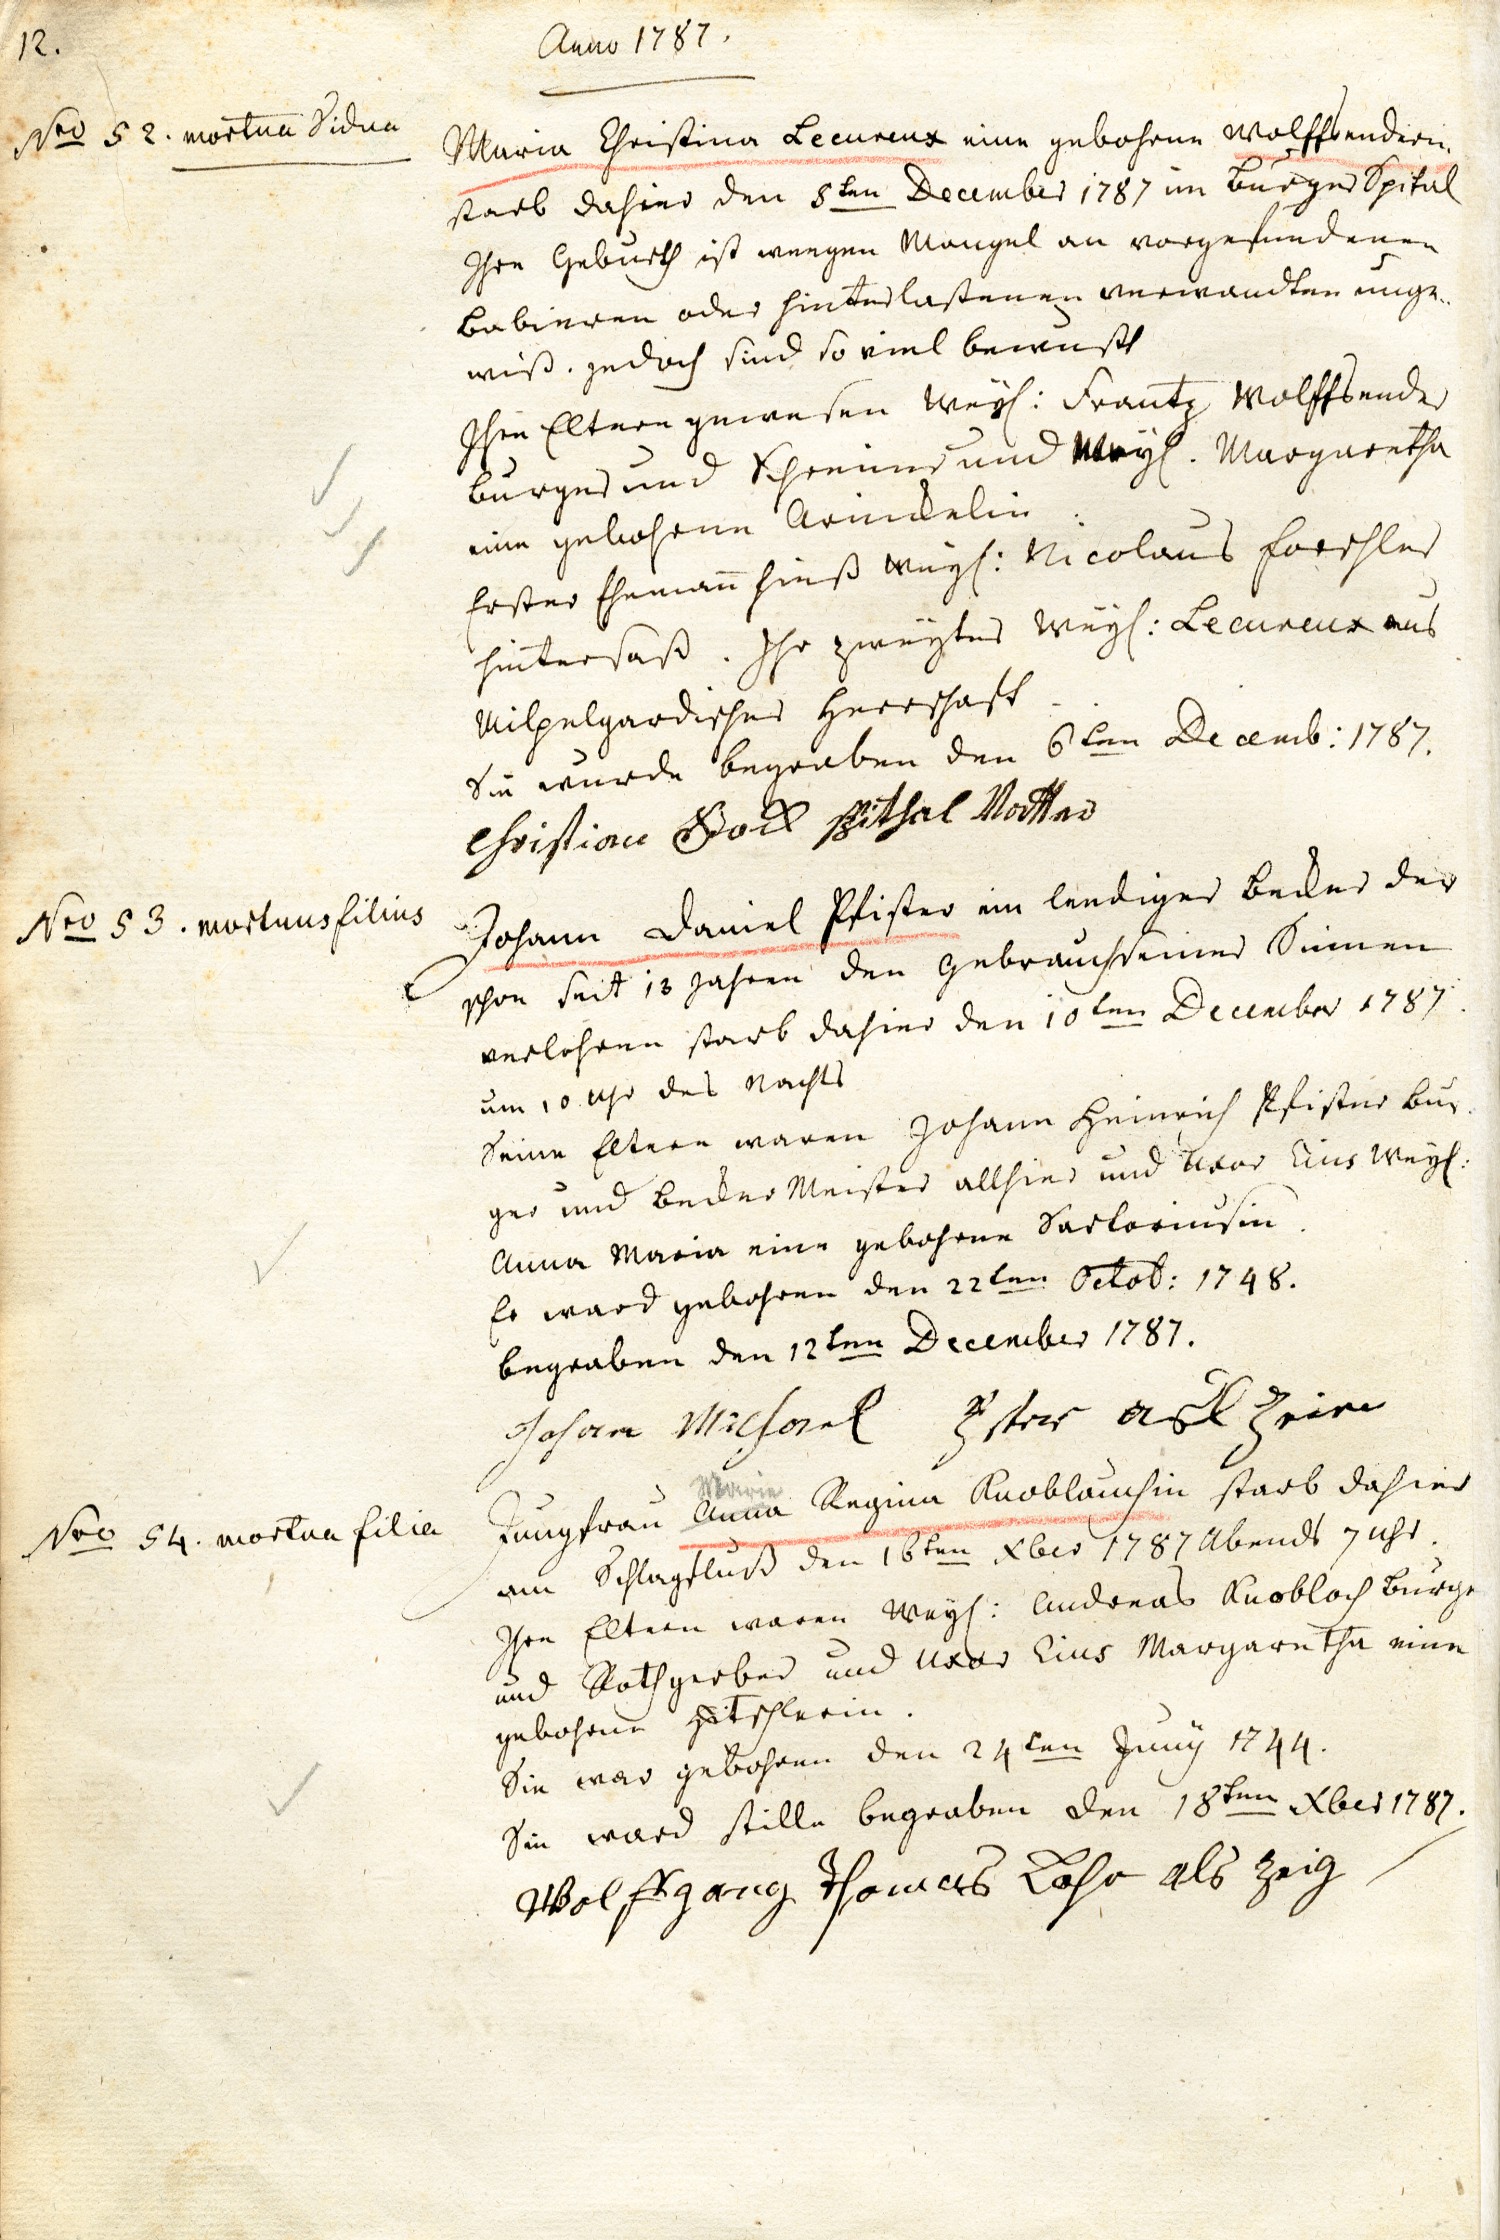 12.
Anno 1787.
Nro 52. mortua Vidua
Maria Christina Lecureux eine gebohrne Wolffsenderin.
starb dahier den 5ten December 1787 im Burger Spital
Ihre Geburth ist weegen Mangel an vorgefundenen
Babieren oder hinterlaßenen verwandten unge-
wiß. jedoch sind so viel bewußt
Ihre Eltern gewesen Weyl: Frantz Wolffsender
burger und Schreiner und Weyl. Margaretha
eine gebohrne
Erster Ehemañ hieß Weyl: Nicolaus Forschler
hintersaß. Ihr zweyter Weyl: Lecureux aus
Milpelgardischer Herrschaft
Sie wurde begraben den 6ten Decemb: 1787.
Christian Spithal Vatter
Nro 53. mortuus filius
Johann Daniel Pfister ein leediger Becker der
schon seit 13 Jahren den Gebrauch seiner Sinnen
verlohren starb dahier den 10ten December 1787.
um 10 Uhr des Nachts
Seine Eltern waren Johann Heinrich Pfister Bur-
ger und Becker Meister allhier und Uxor Eius Weyl:
Anna Maria eine gebohrne Sartoriusin.
Er ward gebohren den 22ten Octob: 1748.
begraben den 12ten December 1787.
Johan Michael
Nro 54. mortua filia
Marie
Jungfrau Anna Regina Knoblauchin starb dahier
am Schlagfluß den 16ten Xber 1787 Abends 7 Uhr.
Ihre Eltern waren Weyl: Andreas Knobloch Burge
und Rothgerber und Uxor Eius Margaretha eine
gebohrne Hitschlerin.
Sie war gebohren den 24ten Juny 1744.
Sie ward stille begraben den 18ten Xber 1787.
Wolffgang Thomas Lohr als Zeig